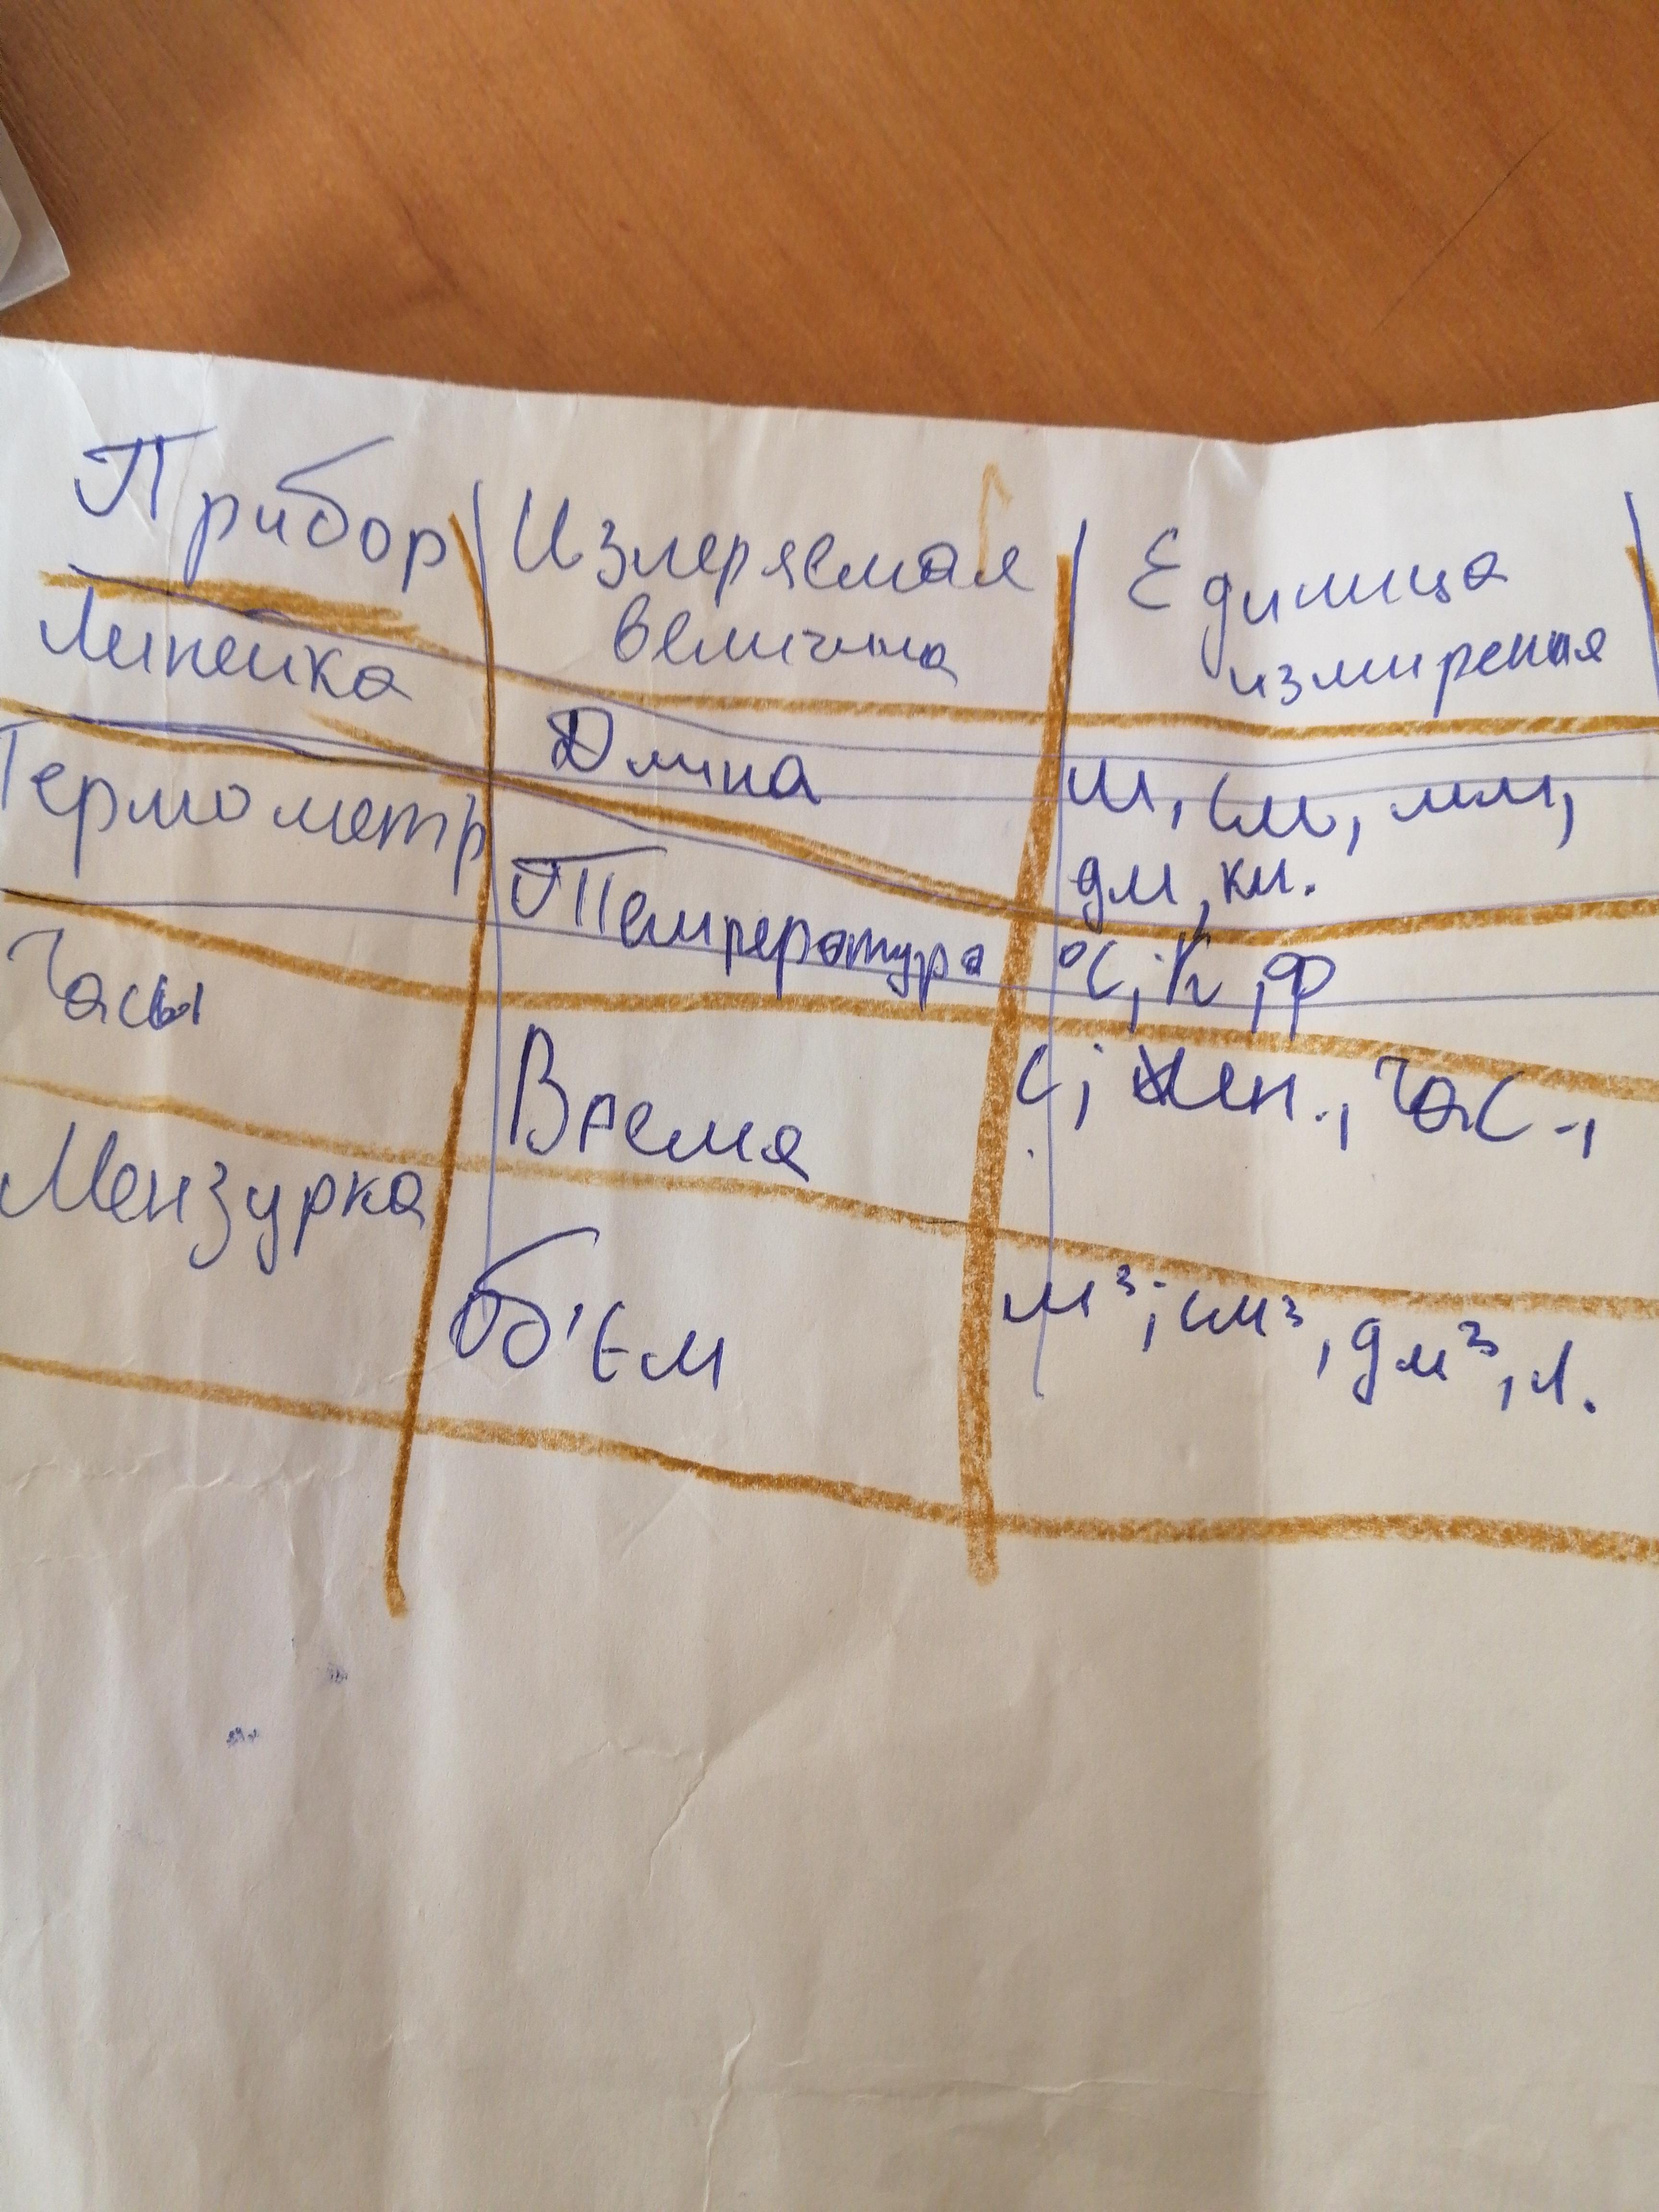 Прибор Измеряемая Единица
величина измирения
Линейка Длина м, см, мм,
дм, км.
Термометр Температура °С, К, Ф
Часы Время с, мен., час.,
Мензурка об'ём м³, см³, дм³, л.